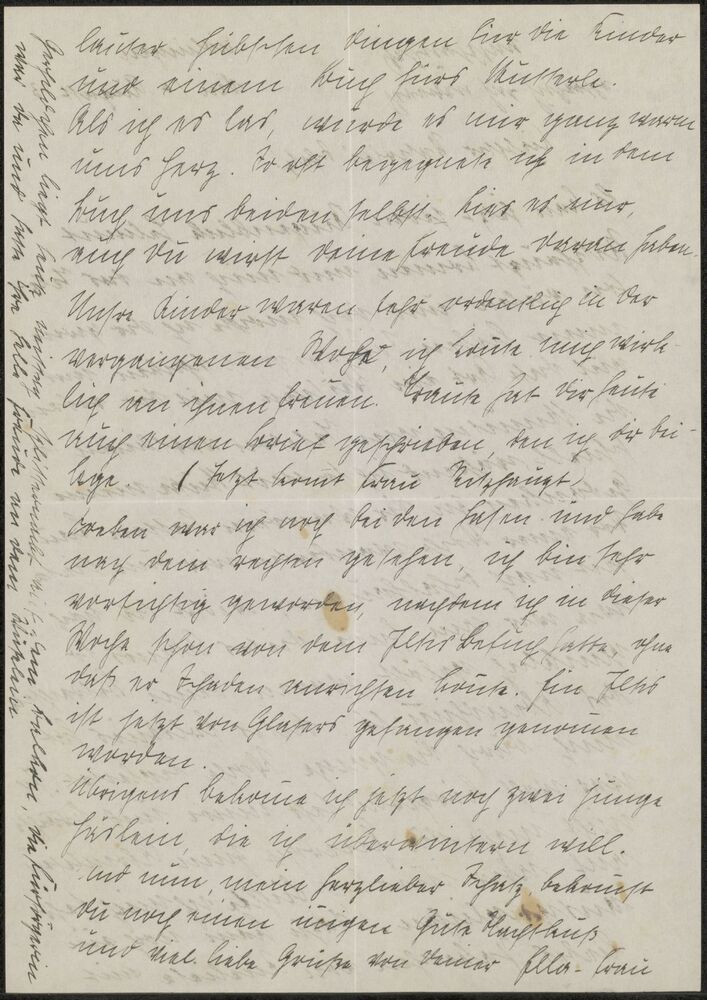 lauter hübschen Dingen für die Kinder
und einem Buch fürs Mutterle.
Als ich es las, wurde es mir ganz warm
ums Herz. So oft begegnete ich in dem
Buch uns beiden selbst. Lies es nur,
auch du wirst deine Freude daran haben.
Unsre Kinder waren sehr ordentlich in der
vergangenen Woche, ich konnte mich wirk-
lich an ihnen freuen. Traute hat dir heute
auch einen Brief geschrieben, den ich dir bei-
lege. (Jetzt komt Frau Ritzhaupt)
soeben war ich noch bei den Hasen und habe
nach dem rechten gesehen, ich bin sehr
vorsichtig geworden, nachdem ich in dieser
Woche schon von dem Iltis Besuch hatte, ohne
daß er Schaden anrichten konte. Ein Iltis
ist jetzt von Glasers gefangen genomen
worden.
Übrigens bekome ich jetzt noch zwei junge
Häslein, die ich überwintern will.
und nun, mein herzlieber Schatz, bekomst
du noch einen inigen Gute Nachtkuß
und viel liebe Grüße von deiner Ella-Frau
liegt
war da und hatte ihre helle Freude an dem